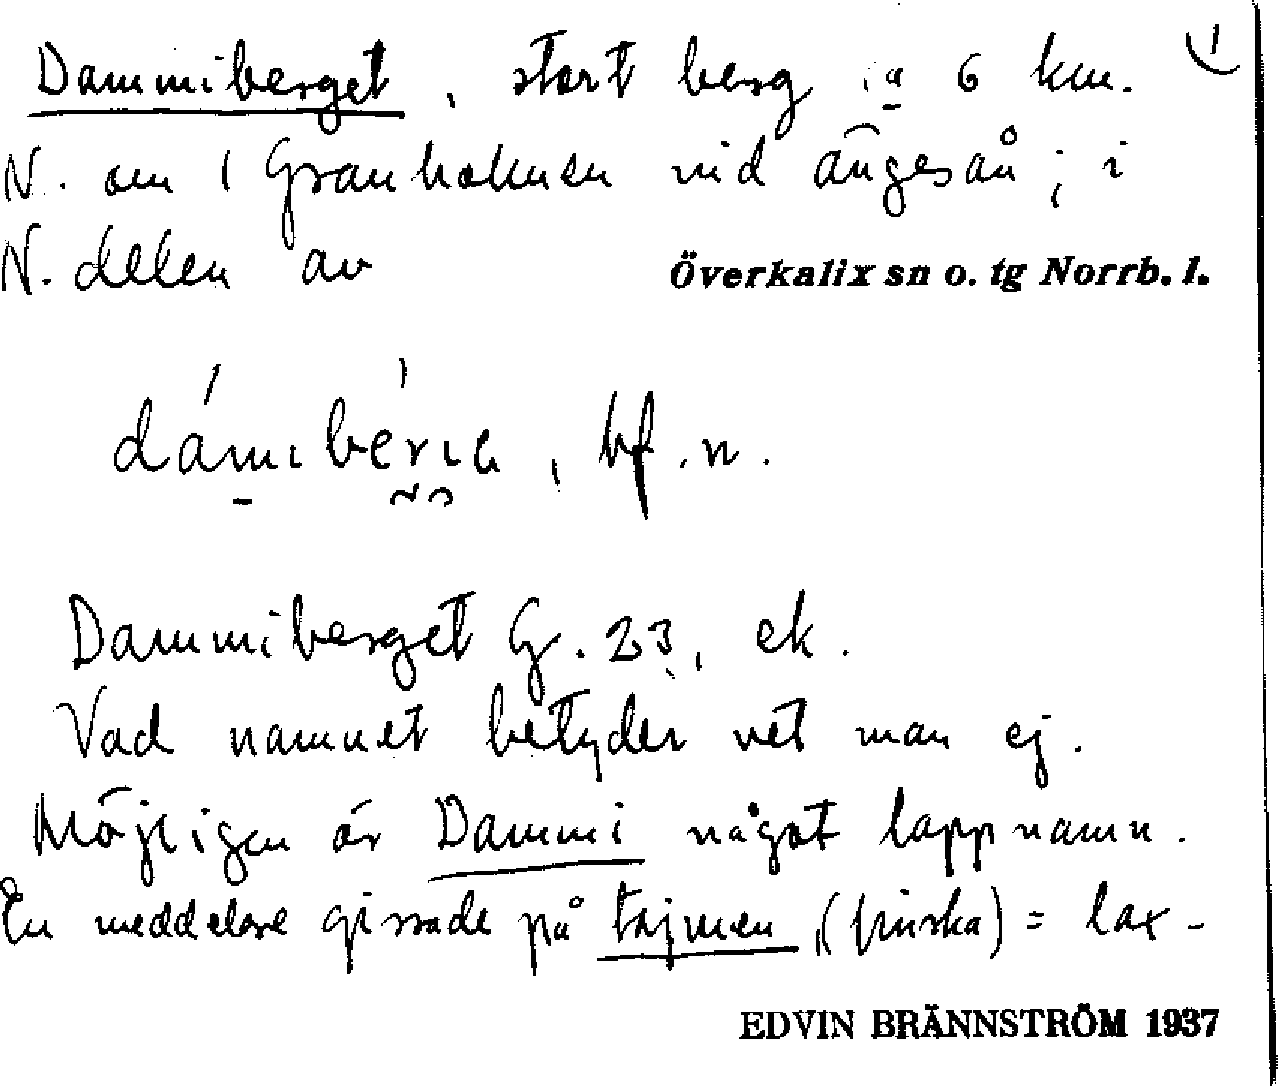 Dammiberget, stort berg ca 6 km. 1)
N. om Granholmen vid ängesån; i
N. delen av Överkalix sn o. tg Norrb. l.
bf. n.
Dammiberget G. 23, ek.
Vad namnet betyder vet man ej.
Möjligen är Dammi något lappnamn.
En meddelare gissade på tajmen (finska) = lax-
EDVIN BRÄNNSTRÖM 1937